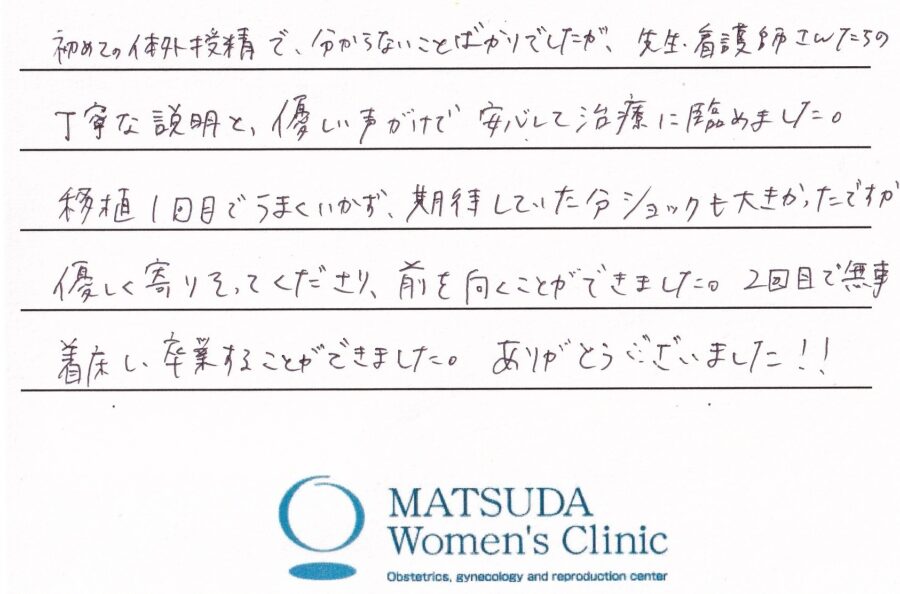 初めての体外授精で、分からないことばかりでしたが、先生、看護師さんたちの
丁寧な説明と、優しい声がけで安心して治療に臨めました。
移植1回目でうまくいかず、期待していた分ショックも大きかったですが
優しく寄りそってくださり、前を向くことができました。2回目で無事
着床し、卒業することができました。ありがとうございました!!
MATSUDA
Women's Clinic
Obstetrics, gynecology and reproduction center